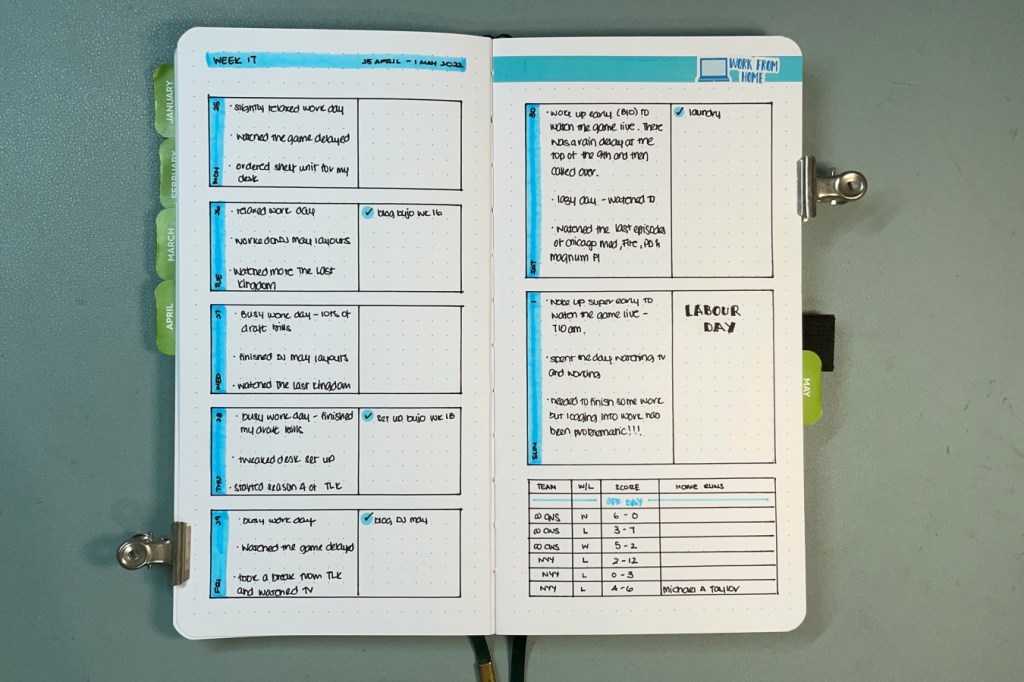 JANUARY
FEBRUARY
MARCH
APRIL
WEEK 17
25 APRIL - 1 MAY 2022
25
MON
• slightly relaxed work day
• watched the game delayed
• ordered shelf unit for my
desk
26
TUE
• relaxed work day
• worked on DJ may layouts
• watched more The Last
Kingdom
blog bujo wk 16
27
WED
• Busy work day - lots of
draft bills
• finished DJ may layouts
• watched The Last Kingdom
28
THU
• busy work day - finished
my draft bills
• tweaked desk set up
• started season 4 of TLK
set up bujo wk 18
29
FRI
• busy work day
• watched the game delayed
• took a break from TLK
and watched TV
blog DJ may
WORK FROM
HOME
30
SAT
• woke up early (810) to
watch the game live. There
was a rain delay at the
top of the 9th and then
called over.
• lazy day - watched TV
• watched the last episodes
of Chicago Med, Fire, PD &
Magnum PI
laundry
1
SUN
• woke up super early to
watch the game live -
710am.
• spent the day watching TV
and working
• needed to finish some work
but logging into work has
been problematic!!!
LABOUR
DAY
MAY
TEAM W/L SCORE HOME RUNS
OFF DAY
@ CWS W 6 - 0
@ CWS L 3 - 7
@ CWS W 5 - 2
NYY L 2 - 12
NYY L 0 - 3
NYY L 4 - 6 Michael A Taylor